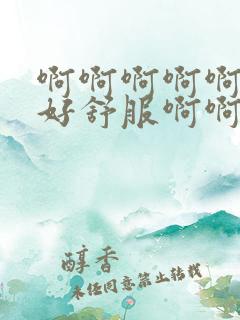 啊啊啊啊啊
好舒服啊啊
醇香
未经同意禁止转载